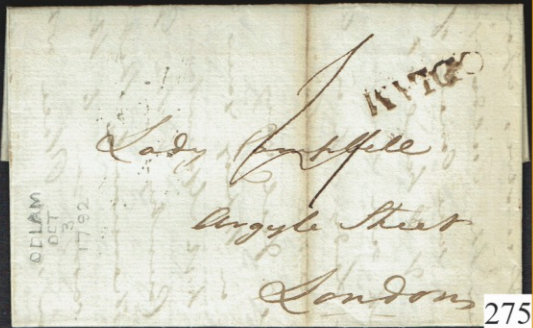 ODIAM
Lady Campbell
Argyle Street
London
ODIAM
OCT
3
1792
275